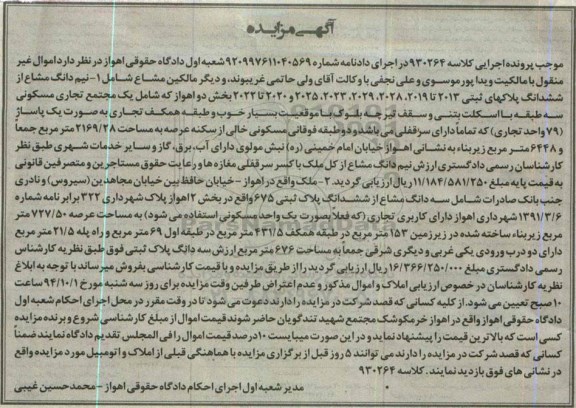 آگهی مزایده
بموجب پرونده اجرایی کلاسه ۹۳۰۲۶۴ در اجرای دادنامه شماره ۹۲۰۹۹۷۶۱۱۰۴۰۵۶۹ شعبه اول دادگاه حقوقی اهواز در نظر دارد اموال غیر
منقول با مالکیت ویدا پور موسوی و علی نجفی با وکالت آقای ولی حاتمی غریبوند، و دیگر مالکین مشاع شامل ۱- نیم دانگ مشاع از
ششدانگ پلاکهای ثبتی ۲۰۱۳ تا ۲۰۱۹، ۲۰۲۸، ۲۰۲۹، ۲۰۲۳، ۲۰۲۵ و ۲۰۲۰ تا ۲۰۲۲ بخش دو اهواز که شامل یک مجتمع تجاری مسکونی
سه طبقه با اسکلت بتنی و سقف تیرچه بلوک با موقعیت بسیار خوب و طبقه همکف تجاری به صورت یک پاساژ
(۷۹ واحد تجاری) که تماماً دارای سرقفلی می باشد و دو طبقه فوقانی مسکونی خالی از سکنه عرصه به مساحت ۲۱۶۹/۲۸ متر مربع جمعاً
و ۶۴۴۸ متر مربع زیربنا به نشانی اهواز خیابان امام خمینی (ره) نبش مولوی دارای آب، برق، گاز و سایر خدمات شهری طبق نظر
کارشناسان رسمی دادگستری ارزش نیم دانگ مشاع از کل ملک با کسر سرقفلی مغازه ها و رعایت حقوق مستاجرین و متصرفین قانونی
به قیمت پایه مبلغ ۱۱/۱۸۴/۵۸۱/۲۵۰ ریال ارزیابی گردید. ۲- ملک واقع در اهواز - خیابان حافظ بین خیابان مجاهدین (سیروس) و نادری
جنب بانک صادرات شامل سه دانگ مشاع از ششدانگ پلاک ثبتی ۶۷۵ واقع در بخش ۲ اهواز پلاک شهرداری ۳۲۲ برابر نامه شماره
۱۳۹۱/۳/۶ شهرداری اهواز دارای کاربری تجاری (که فعلا بصورت یک واحد مسکونی استفاده می شود) به مساحت عرصه ۷۲۷/۵۰ متر
مربع زیربناء ساخته شده در زیرزمین ۱۵۳ متر مربع در طبقه همکف ۴۳۱/۵ متر مربع در طبقه اول ۶۹ متر مربع و راه پله ۲۱/۵ متر مربع
دارای دو درب ورودی یکی غربی و دیگری شرقی جمعاً به مساحت ۶۷۶ متر مربع ارزش سه دانگ پلاک ثبتی فوق طبق نظریه کارشناس
رسمی دادگستری مبلغ ۱۶/۳۶۶/۲۵۰/۰۰۰ ریال ارزیابی گردید را از طریق مزایده و با قیمت کارشناسی بفروش میرساند با توجه به ابلاغ
نظریه کارشناسان در خصوص ارزیابی املاک و اموال مذکور و عدم اعتراض طرفین وقت مزایده برای روز سه شنبه مورخ ۹۴/۱۰/۱ ساعت
۱۰ صبح تعیین می شود. از کلیه کسانی که قصد شرکت در مزایده را دارند دعوت می شود تا در وقت مقرر در محل اجرای احکام شعبه اول
دادگاه حقوقی اهواز واقع در اهواز خرمکوشک مجتمع شهید تندگویان حاضر شوند قیمت اموال از مبلغ کارشناسی شروع و برنده مزایده
کسی است که بالاترین قیمت را پیشنهاد نماید و در این صورت میبایست ۱۰ درصد قیمت اموال را فی المجلس تقدیم دادگاه نمایند ضمناً
کسانی که قصد شرکت در مزایده را دارند می توانند ۵ روز قبل از برگزاری مزایده با هماهنگی قبلی از املاک و اتومبیل مورد مزایده واقع
در نشانی های فوق بازدید نمایند. کلاسه ۹۳۰۲۶۴
مدیر شعبه اول اجرای احکام دادگاه حقوقی اهواز - محمدحسین غیبی